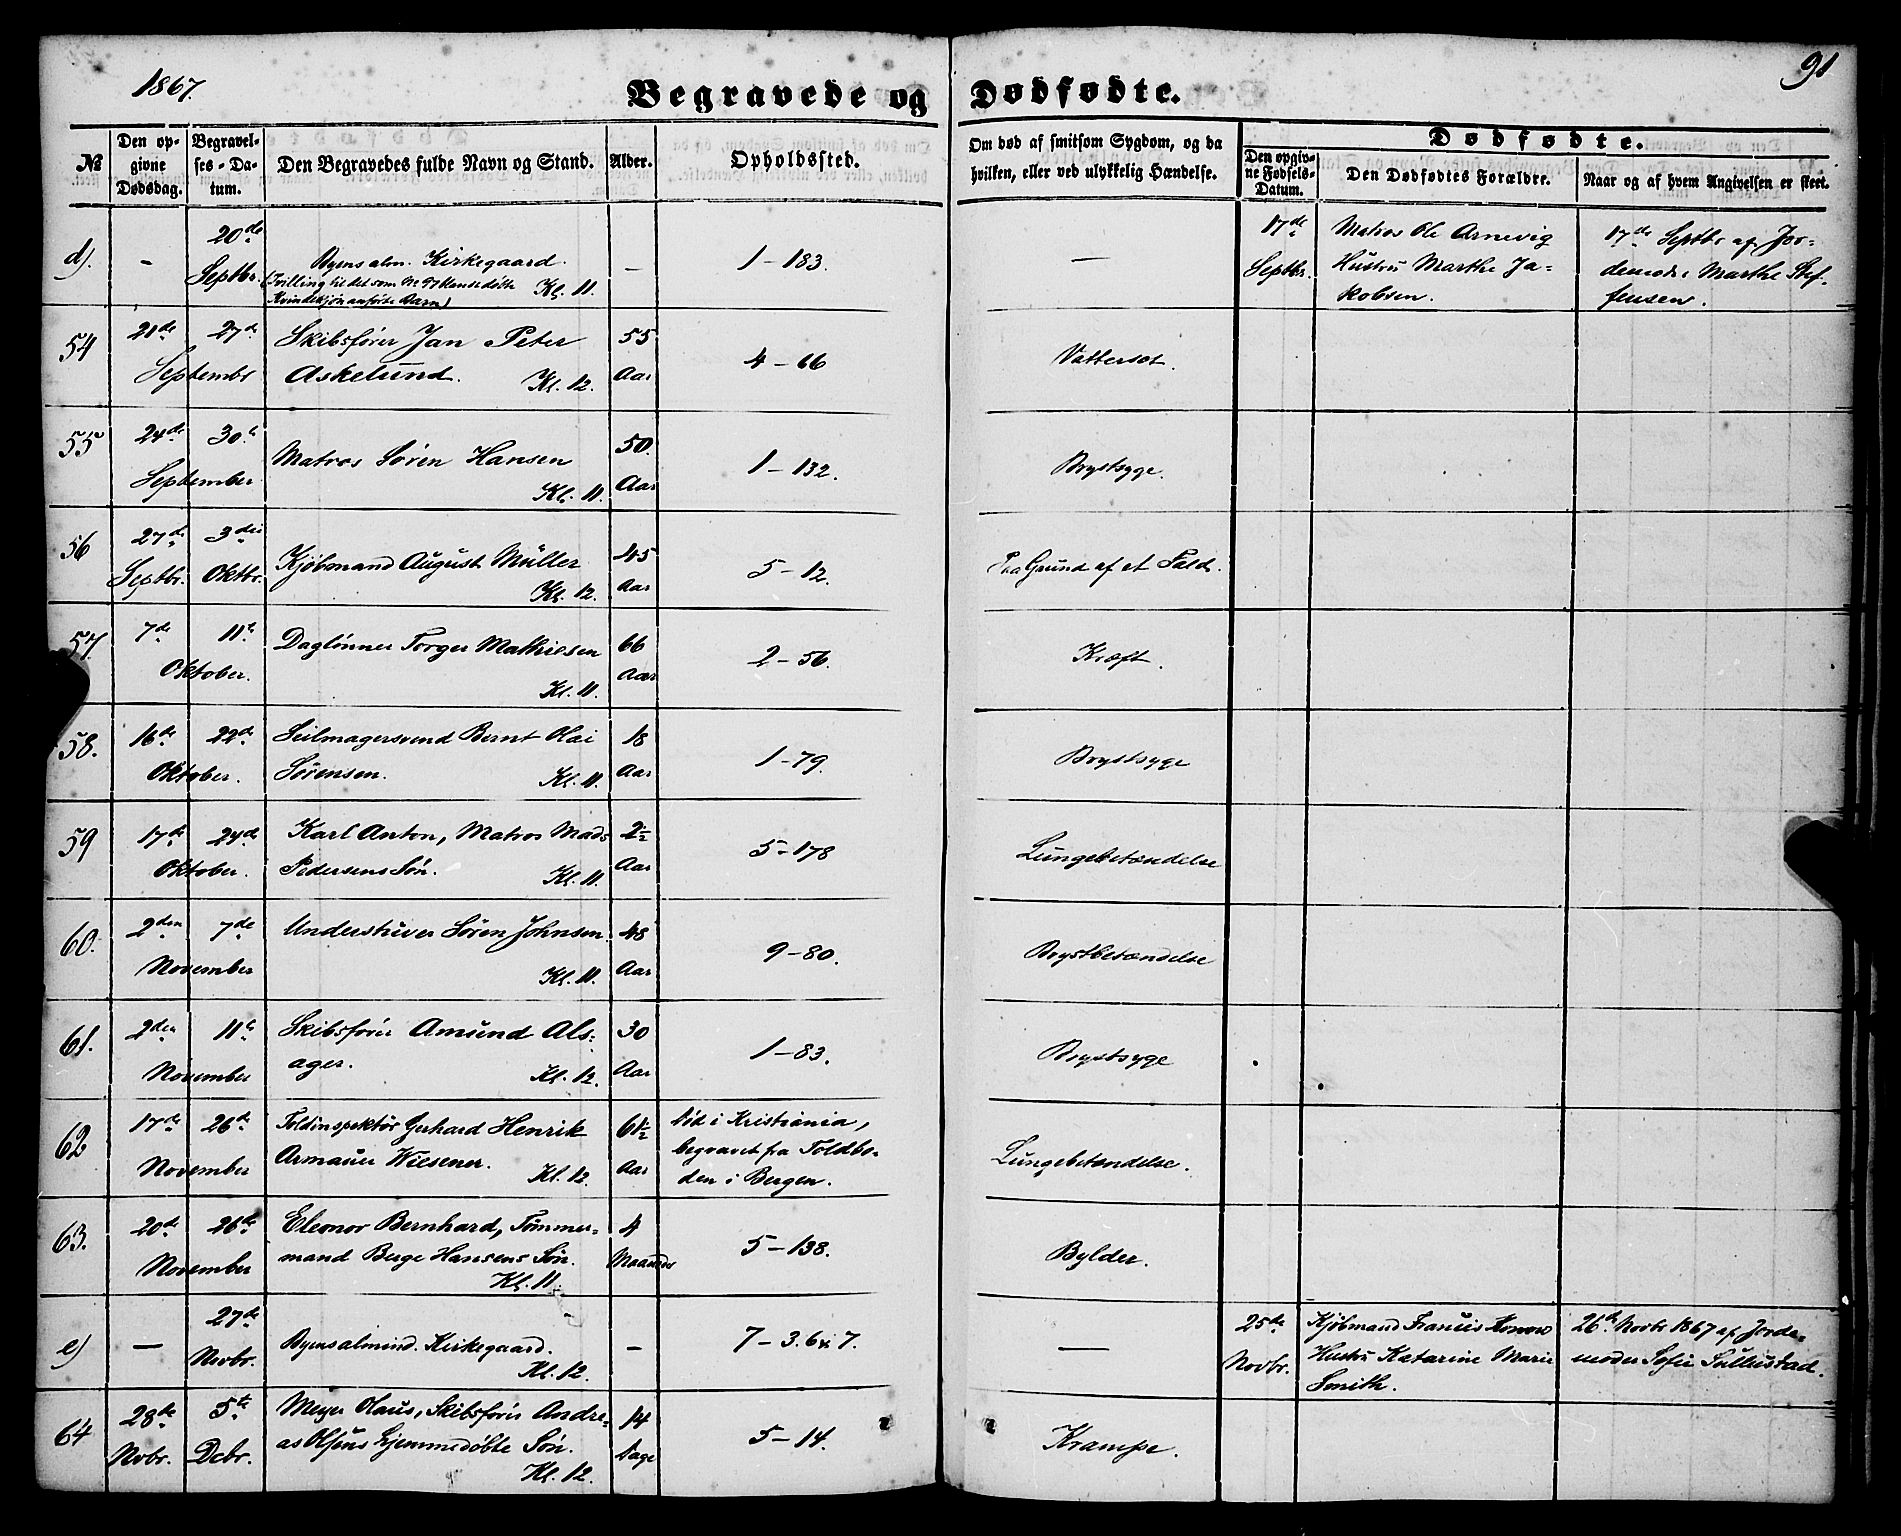 1867.
91
Begravede og Dødfødte.
№
Den opgivne Dødsdag.
Begravelses-Datum.
Den Begravedes fulde Navn og Stand.
Alder.
Opholdssted.
Om død af smitsom Sygdom, og da hvilken, eller ved ulykkelig Hændelse.
Dødfødte.
Den opgivne Fødsels-Datum.
Den Dødfødtes Forældre.
Naar og af hvem Angivelsen er skeet.
d). - 20de Septbr. Byens alm. Kirkegaard.
(Tvilling til det som No 97 hjemmedøbte
Kvindekjøn anførte Barn) Kl. 11. - 1-183. — 17de Septbr. Matros Ole Arnevig
Hustru Marthe Ja-
kobsen. 17de Septbr af Jor-
demoder Marthe Stef-
fensen.
54 21de 27de Septembr Skibsfører Jan Peter
Askelund. Kl. 12. 55 Aar 4-66 Vattersot.
55 24de 30te September Matros Sören Hansen
Kl. 11. 50 Aar 1-132. Brystsyge.
56 27de Septbr. 3die Oktbr. Kjøbmand August Müller
Kl. 12. 45 Aar 5-12. Paa Grund af et Fald.
57. 7de 11te Oktober. Daglønner Torger Mathiesen
Kl. 11. 66 Aar 2-56. Kræft.
58. 16de 22de Oktober. Seilmagersvend Bernt Olai
Sørensen. Kl. 11. 18 Aar 1-79. Brystsyge
59 17de 24de Oktober. Karl Anton, Matros Mads
Pedersens Søn. Kl. 11. 2½ Aar 5-178 Lungebetændelse
60. 2den 7de November Understuver Søren Johnsen.
Kl. 11. 48 Aar 9-80. Brystbetændelse
61. 2den 11te November Skibsfører Amund Als-
ager. Kl. 12. 30 Aar 1-83. Brystsyge
62 17de 26de November Toldinspektør Gerhard Henrik
Armauer Wiesener. Kl. 12. 61½ Aar Død i Kristiania,
begravet fra Toldbo-
den i Bergen. Lungebetændelse.
63. 20de 26de November Eleonor Bernhard, Tømmer-
mand Berge Hansens Søn.
Kl. 11. 4 Maaneder 5-138. Bylder.
e) — 27de Novbr. Byens almind. Kirkegaard.
Kl. 12. - 7-3.6 & 7. — 25de Novbr. Kjøbmand Francis Konow
Hustru Katarine Marie
Smith. 26de Novbr 1867 af Jorde-
moder Sofie Sollustad.
64 28de Novbr. 5te Decbr. Meyer Olaus, Skibsfører Andre-
as Olsens hjemmedøbte Søn.
Kl. 12. 14 Dage 5-14. Krampe.